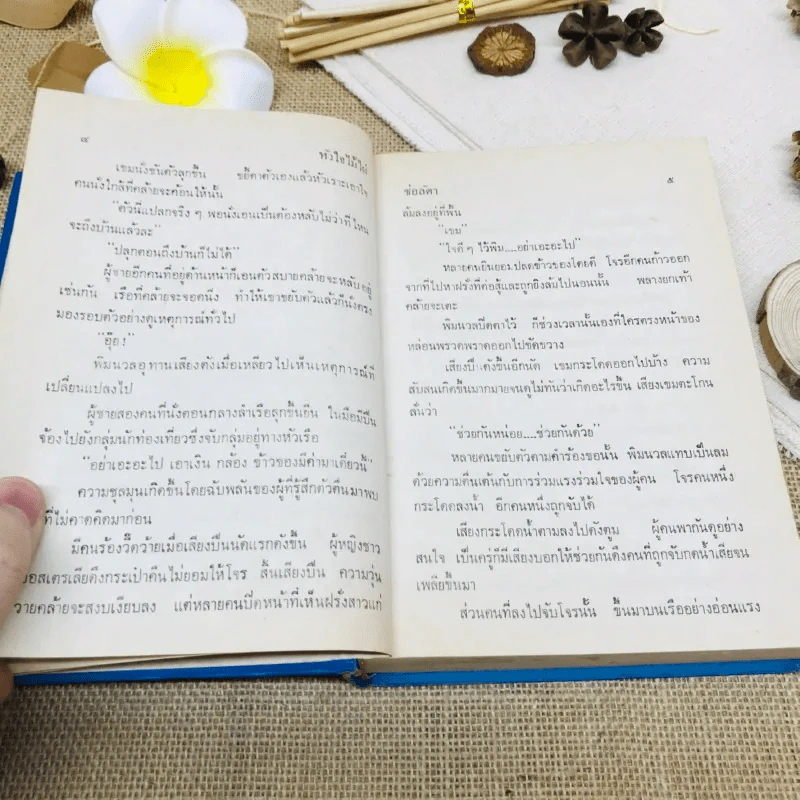 ๔
หัวใจไม้ไผ่
เขมนั่งชันตัวลุกขึ้น ขยี้ตาตัวเองแล้วหัวเราะเอาใจ
คนนั่งใกล้ที่คล้ายจะค้อนให้นั้น
"ตัวนี่แปลกจริง ๆ พอนั่งเอนเป็นต้องหลับไม่ว่าที่ไหน
จะถึงบ้านแล้วละ"
"ปลุกตอนถึงบ้านก็ไม่ได้"
ผู้ชายอีกคนที่อยู่ด้านหน้าก็เอนตัวสบายคล้ายจะหลับอยู่
เช่นกัน เรือที่คล้ายจะจอดนิ่ง ทำให้เขาขยับตัวแล้วก็นั่งตรง
มองรอบตัวอย่างดูเหตุการณ์ทั่วไป
"อุ๊ย!"
พิมนวลอุทานเสียงดังเมื่อเหลียวไปเห็นเหตุการณ์ที่
เปลี่ยนแปลงไป
ผู้ชายสองคนที่นั่งตอนกลางลำเรือลุกขึ้นยืน ในมือมีปืน
จ้องไปยังกลุ่มนักท่องเที่ยวซึ่งจับกลุ่มอยู่ทางหัวเรือ
"อย่าเอะอะไป เอาเงิน กล้อง ข้าวของมีค่ามาเดี๋ยวนี้"
ความชุลมุนเกิดขึ้นโดยฉับพลันของผู้ที่รู้สึกตัวตื่นมาพบ
ที่ไม่คาดคิดมาก่อน
มีคนร้องวี๊ดว้ายเมื่อเสียงปืนนัดแรกดังขึ้น ผู้หญิงชาว
ออสเตรเลียดึงกระเป๋าคืนไม่ยอมให้โจร สิ้นเสียงปืน ความวุ่น
วายคล้ายจะสงบเงียบลง แต่หลายคนปิดหน้าที่เห็นฝรั่งสาวแก่
ช่อลัดา
๕
ล้มลงอยู่ที่พื้น
"เขม"
"ใจดี ๆ ไว้พิม....อย่าเอะอะไป"
หลายคนยินยอมปลดข้าวของโดยดี โจรอีกคนก้าวออก
จากที่ไปหาฝรั่งที่ต่อสู้และถูกยิงล้มไปนอนนั้น พลางยกเท้า
คล้ายจะเตะ
พิมนวลปิดตาไว้ ก็ช่วงเวลานั้นเองที่ใครตรงหน้าของ
หล่อนพรวดพราดออกไปขัดขวาง
เสียงปืนดังขึ้นอีกนัด เขมกระโดดออกไปบ้าง ความ
สับสนเกิดขึ้นมากมายจนดูไม่ทันว่าเกิดอะไรขึ้น เสียงเขมตะโกน
ลั่นว่า
"ช่วยกันหน่อย....ช่วยกันด้วย"
หลายคนขยับตัวตามคำร้องขอนั้น พิมนวลแทบเป็นลม
ด้วยความตื่นเต้นกับการร่วมแรงร่วมใจของผู้คน โจรคนหนึ่ง
กระโดดลงน้ำ อีกคนหนึ่งถูกจับได้
เสียงกระโดดน้ำตามลงไปดังตูม ผู้คนพากันดูอย่าง
สนใจ เป็นครู่ก็มีเสียงบอกให้ช่วยกันดึงคนที่ถูกจับกดน้ำเสียจน
เพลียขึ้นมา
ส่วนคนที่ลงไปจับโจรนั้น ขึ้นมาบนเรืออย่างอ่อนแรง